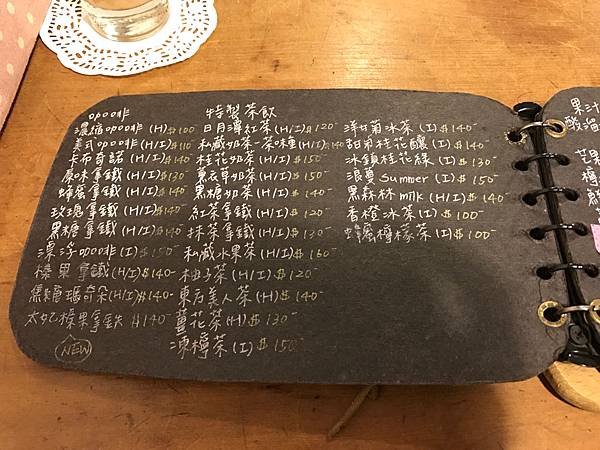 咖啡
濃縮咖啡 (H) $100
美式咖啡 (H/I) $110
卡布奇諾 (H/I) $140-
原味拿鐵 (H/I) $130
蜂蜜拿鐵 (H/I) $140
玫瑰拿鐵 (H/I) $140-
黑糖拿鐵 (H/I) $140-
漂浮咖啡 (I) $150-
榛果拿鐵 (H/I) $140-
焦糖瑪奇朵 (H/I) $140-
太妃榛果拿鐵 $140-
NEW
特製茶飲
日月潭紅茶 (H/I) $120-
私藏奶茶-茶味種 (H/I) $140
桂花奶茶 (H/I) $150-
薰衣草奶茶 (H/I) $150-
黑糖奶茶 (H/I) $140-
紅茶拿鐵 (H/I) $120-
抹茶拿鐵 (H/I) $130-
私藏水果茶 (H/I) $160-
柚子茶 (H/I) $120
東方美人茶 (H) $140-
薑花茶 (H) $130-
凍檸茶 (I) $150-
洋甘菊冰茶 (I) $140-
甜弟桂花釀 (I) $140-
冰鎮桂花綠 (I) $130-
浪漫 Summer (I) $150-
黑森林 milk (H/I) $140-
香橙冰茶 (I) $100-
蜂蜜檸檬茶 (I) $100-
果汁
酸溜
芒果
檸